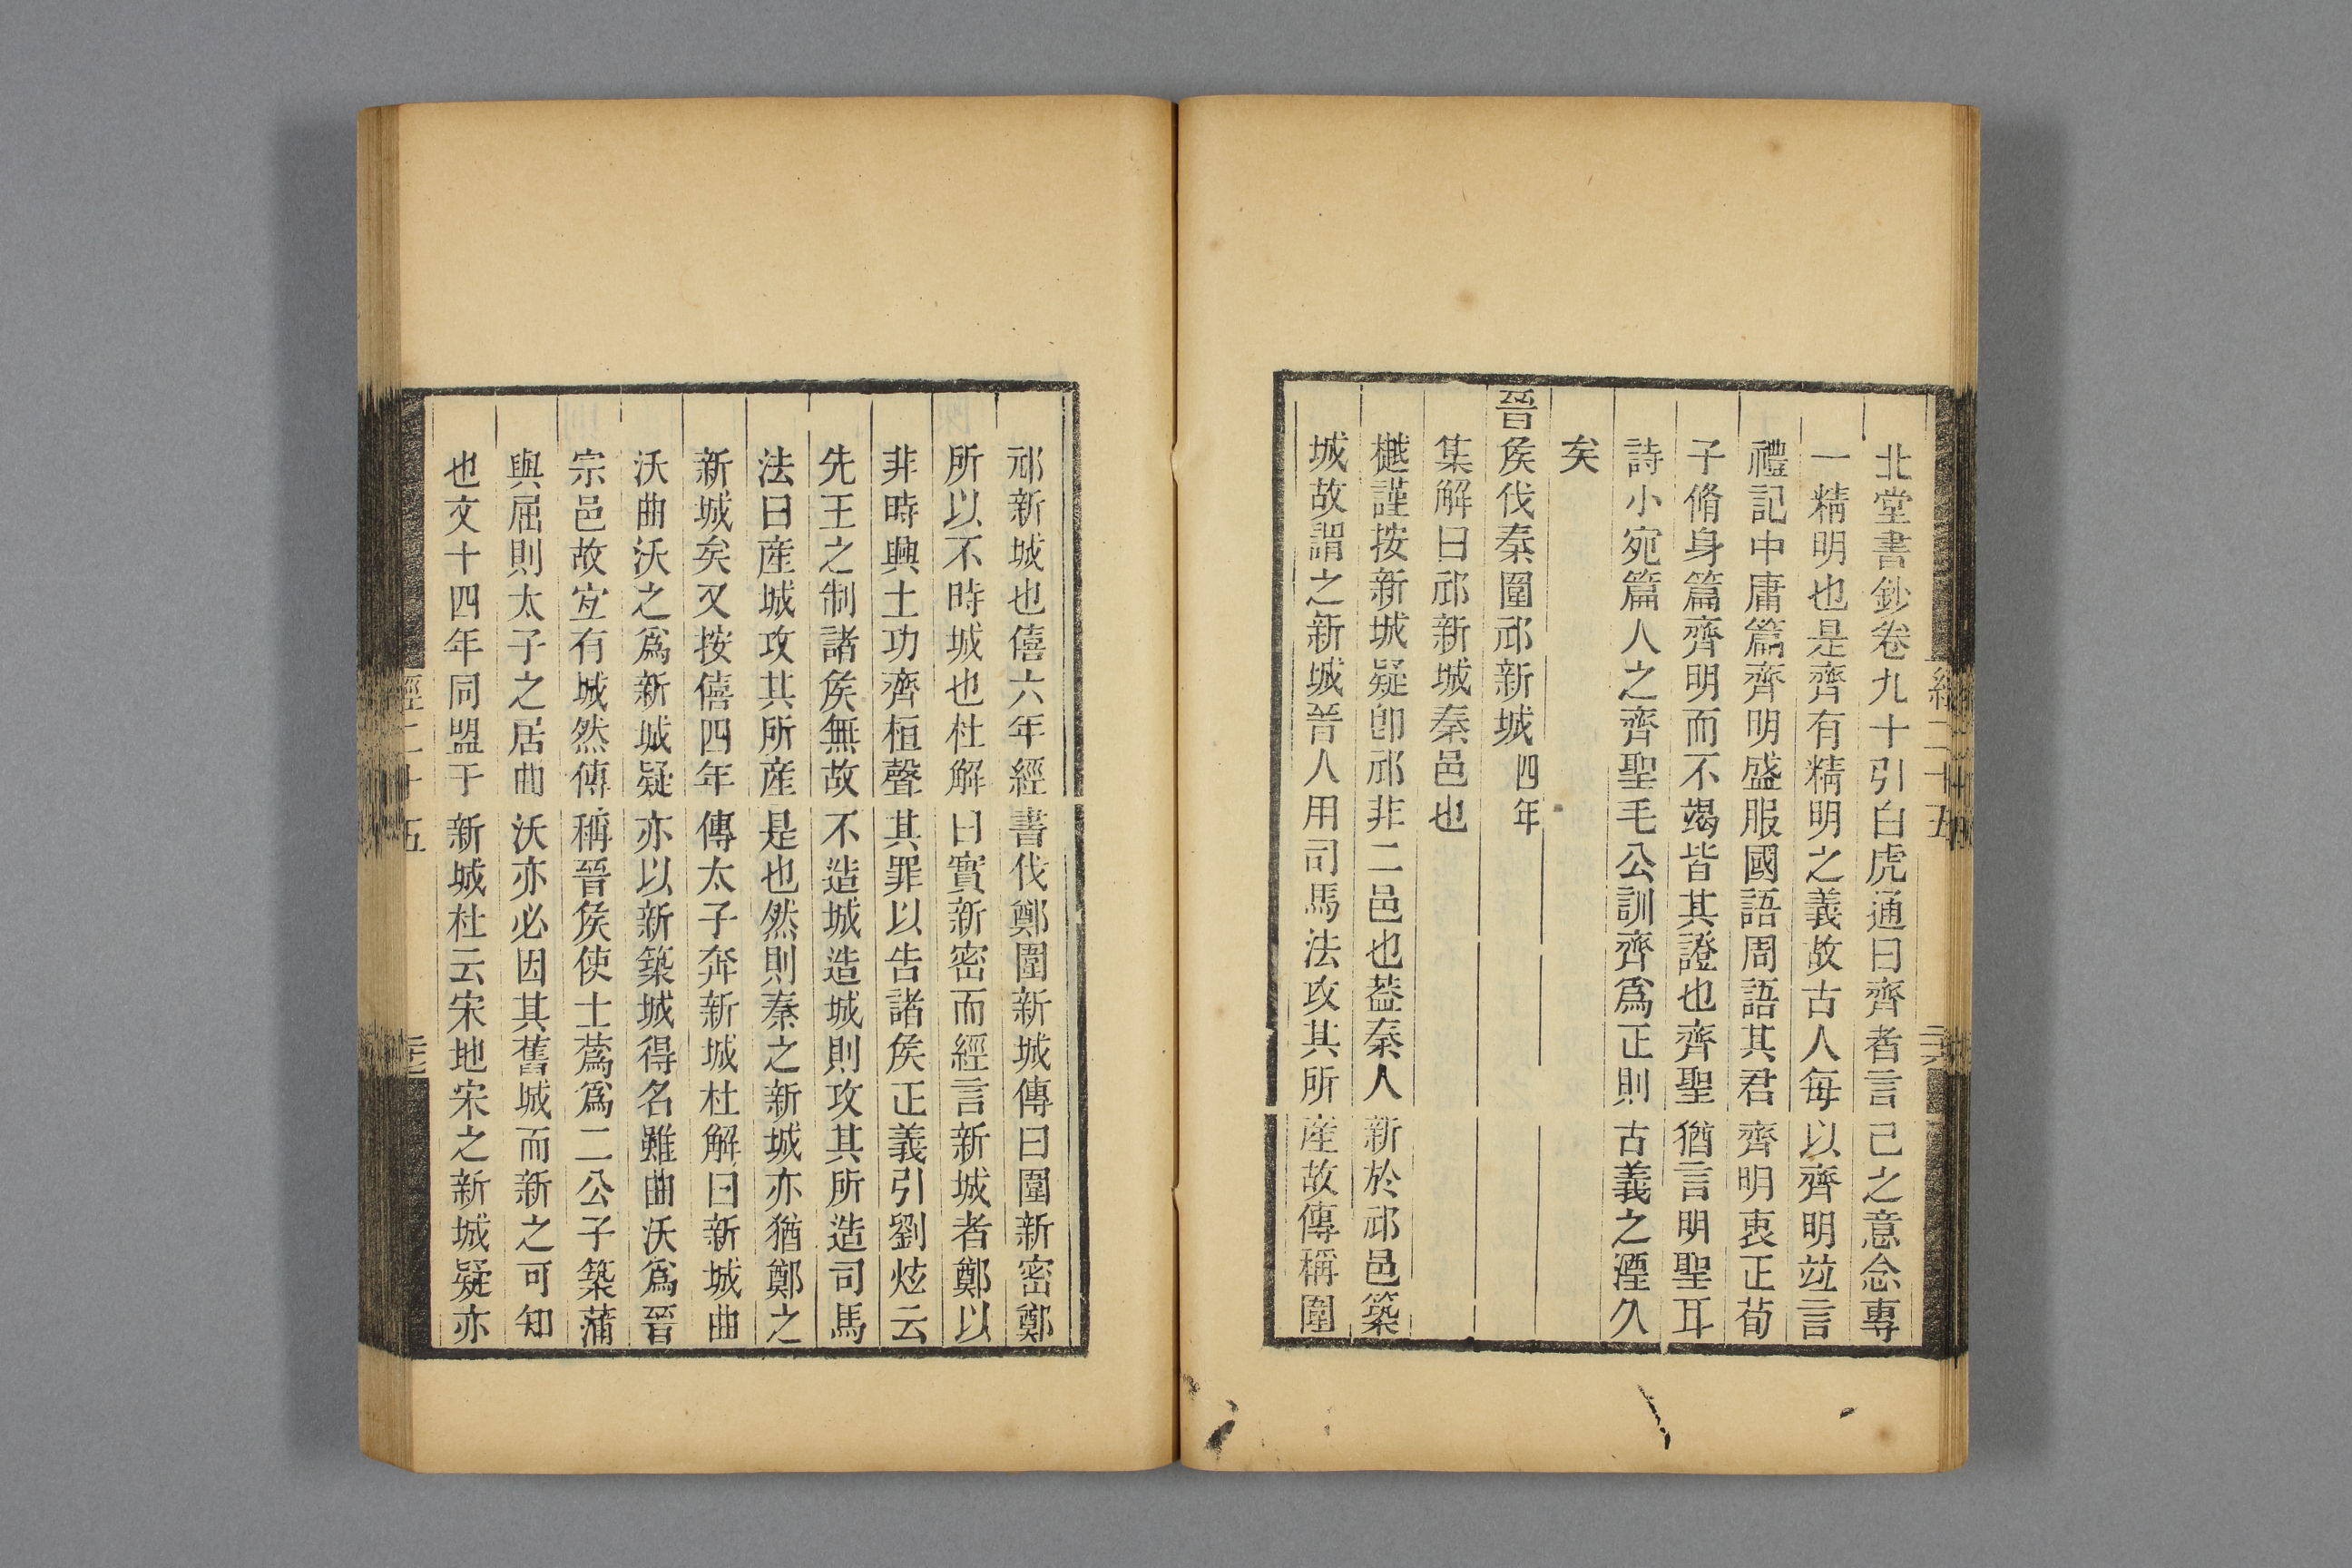 北堂書鈔卷九十引白虎通曰齊者言己之意念專
一精明也是齊有精明之義故古人每以齊明竝言
禮記中庸篇齊明盛服國語周語其君齊明衷正荀
子脩身篇齊明而不竭皆其證也齊聖猶言明聖耳
詩小宛篇人之齊聖毛公訓齊爲正則古義之湮久
矣
晉矦伐秦圍邧新城四年
集解曰邧新城秦邑也
樾謹按新城疑卽邧非二邑也葢秦人新於邧邑築
城故謂之新城晉人用司馬法攻其所産故傳稱圍
邧新城也僖六年經書伐鄭圍新城傳曰圍新密鄭
所以不時城也杜解曰實新密而經言新城者鄭以
非時興土功齊桓聲其罪以告諸矦正義引劉炫云
先王之制諸矦無故不造城造城則攻其所造司馬
法曰産城攻其所産是也然則秦之新城亦猶鄭之
新城矣又按僖四年傳太子奔新城杜解曰新城曲
沃曲沃之爲新城疑亦以新築城得名雖曲沃爲晉
宗邑故宜有城然傳稱晉矦使士蔿爲二公子築蒲
與屈則太子之居曲沃亦必因其舊城而新之可知
也文十四年同盟于新城杜云宋地宋之新城疑亦
經二十五